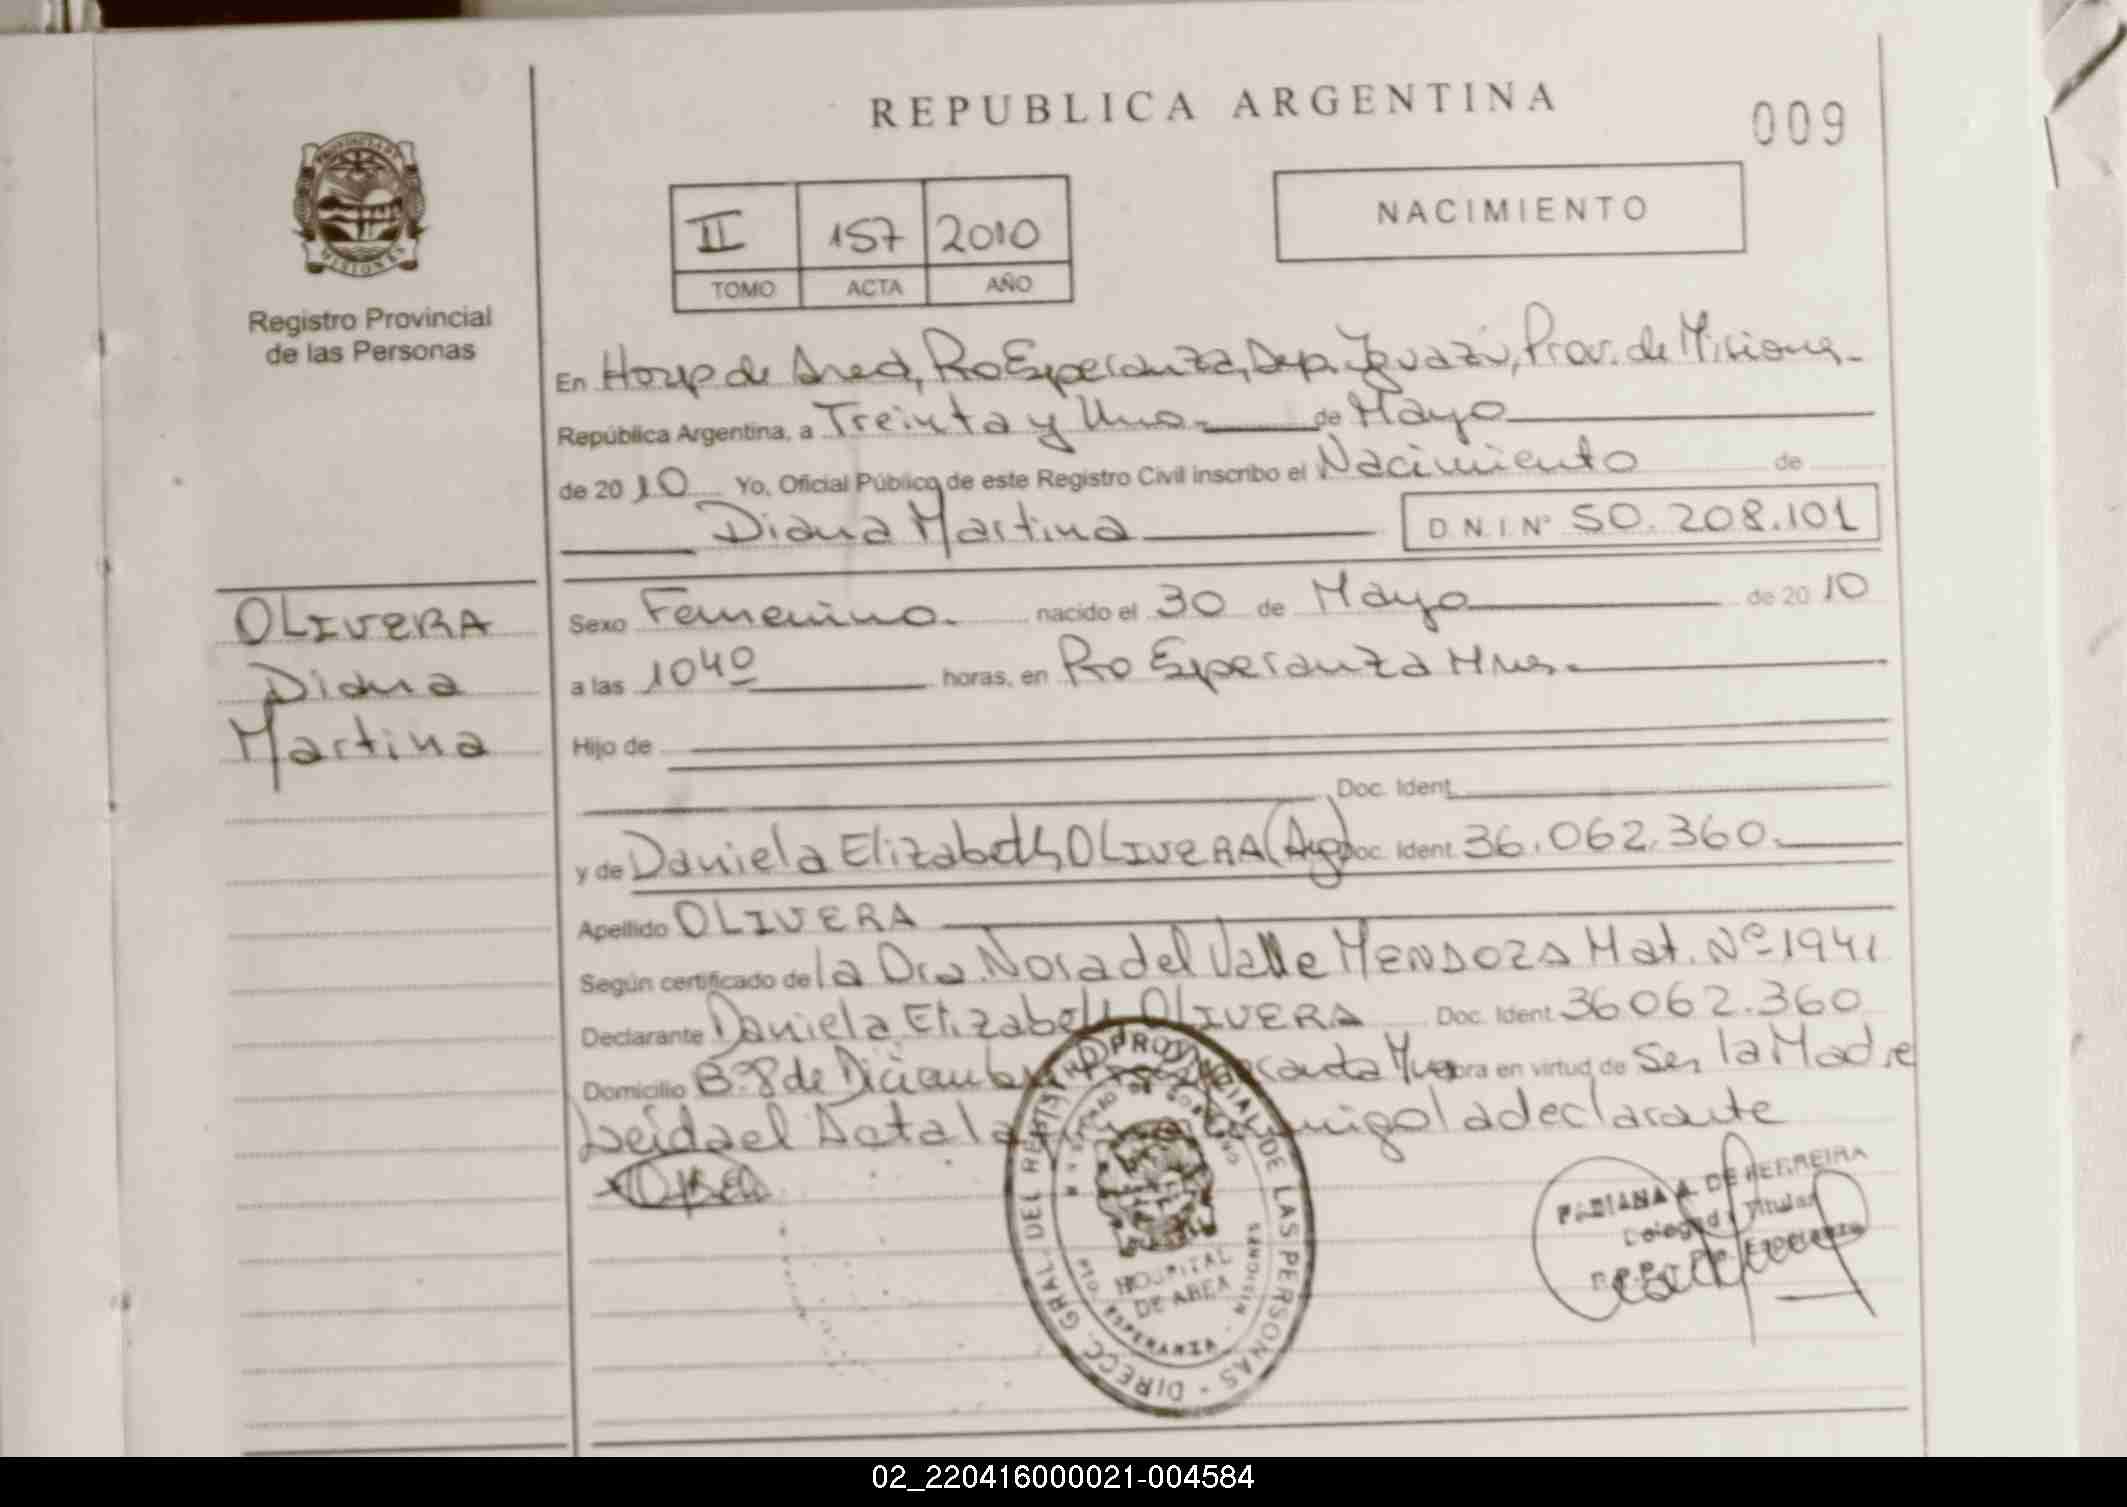 REPUBLICA ARGENTINA
009
PROVINCIA DE
MISIONES
Registro Provincial
de las Personas
II 157 2010
TOMO ACTA AÑO
NACIMIENTO
En Hosp de Area, Pto Esperanza, Dep. Iguazú, Prov. de Misiones.-
República Argentina, a Treinta y Uno.- de Mayo
de 2010 Yo, Oficial Público de este Registro Civil inscribo el Nacimiento de
Diana Martina
D.N.I. Nº 50.208.101
OLIVERA
Diana
Martina
Sexo Femenino. nacido el 30 de Mayo de 2010
a las 1040 horas, en Pto Esperanza Mnes.
Hijo de
Doc. Ident.
y de Daniela Elizabeth OLIVERA (Arg) Doc. Ident. 36.062.360.
Apellido OLIVERA
Según certificado de la Dra. Nora del Valle MENDOZA Mat. Nº 1941
Declarante Daniela Elizabeth OLIVERA Doc. Ident. 36062.360
Domicilio Bº 8 de Diciembre obra en virtud de Ser la Madre
Leida el Acta la declarante
DIRECC. GRAL. DEL REGISTRO PROVINCIAL DE LAS PERSONAS
MINISTERIO DE GOBIERNO
HOSPITAL
DE AREA
PTO ESPERANZA - MISIONES
FABIANA A. DE FERREIRA
Delegada Titular
Pto. Esperanza
02_220416000021-004584